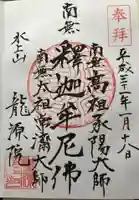 奉拝
平成三十一年一月八日
南無高祖承陽大師
南無釋迦牟尼佛
南無太祖常濟大師
水上山
龍源院